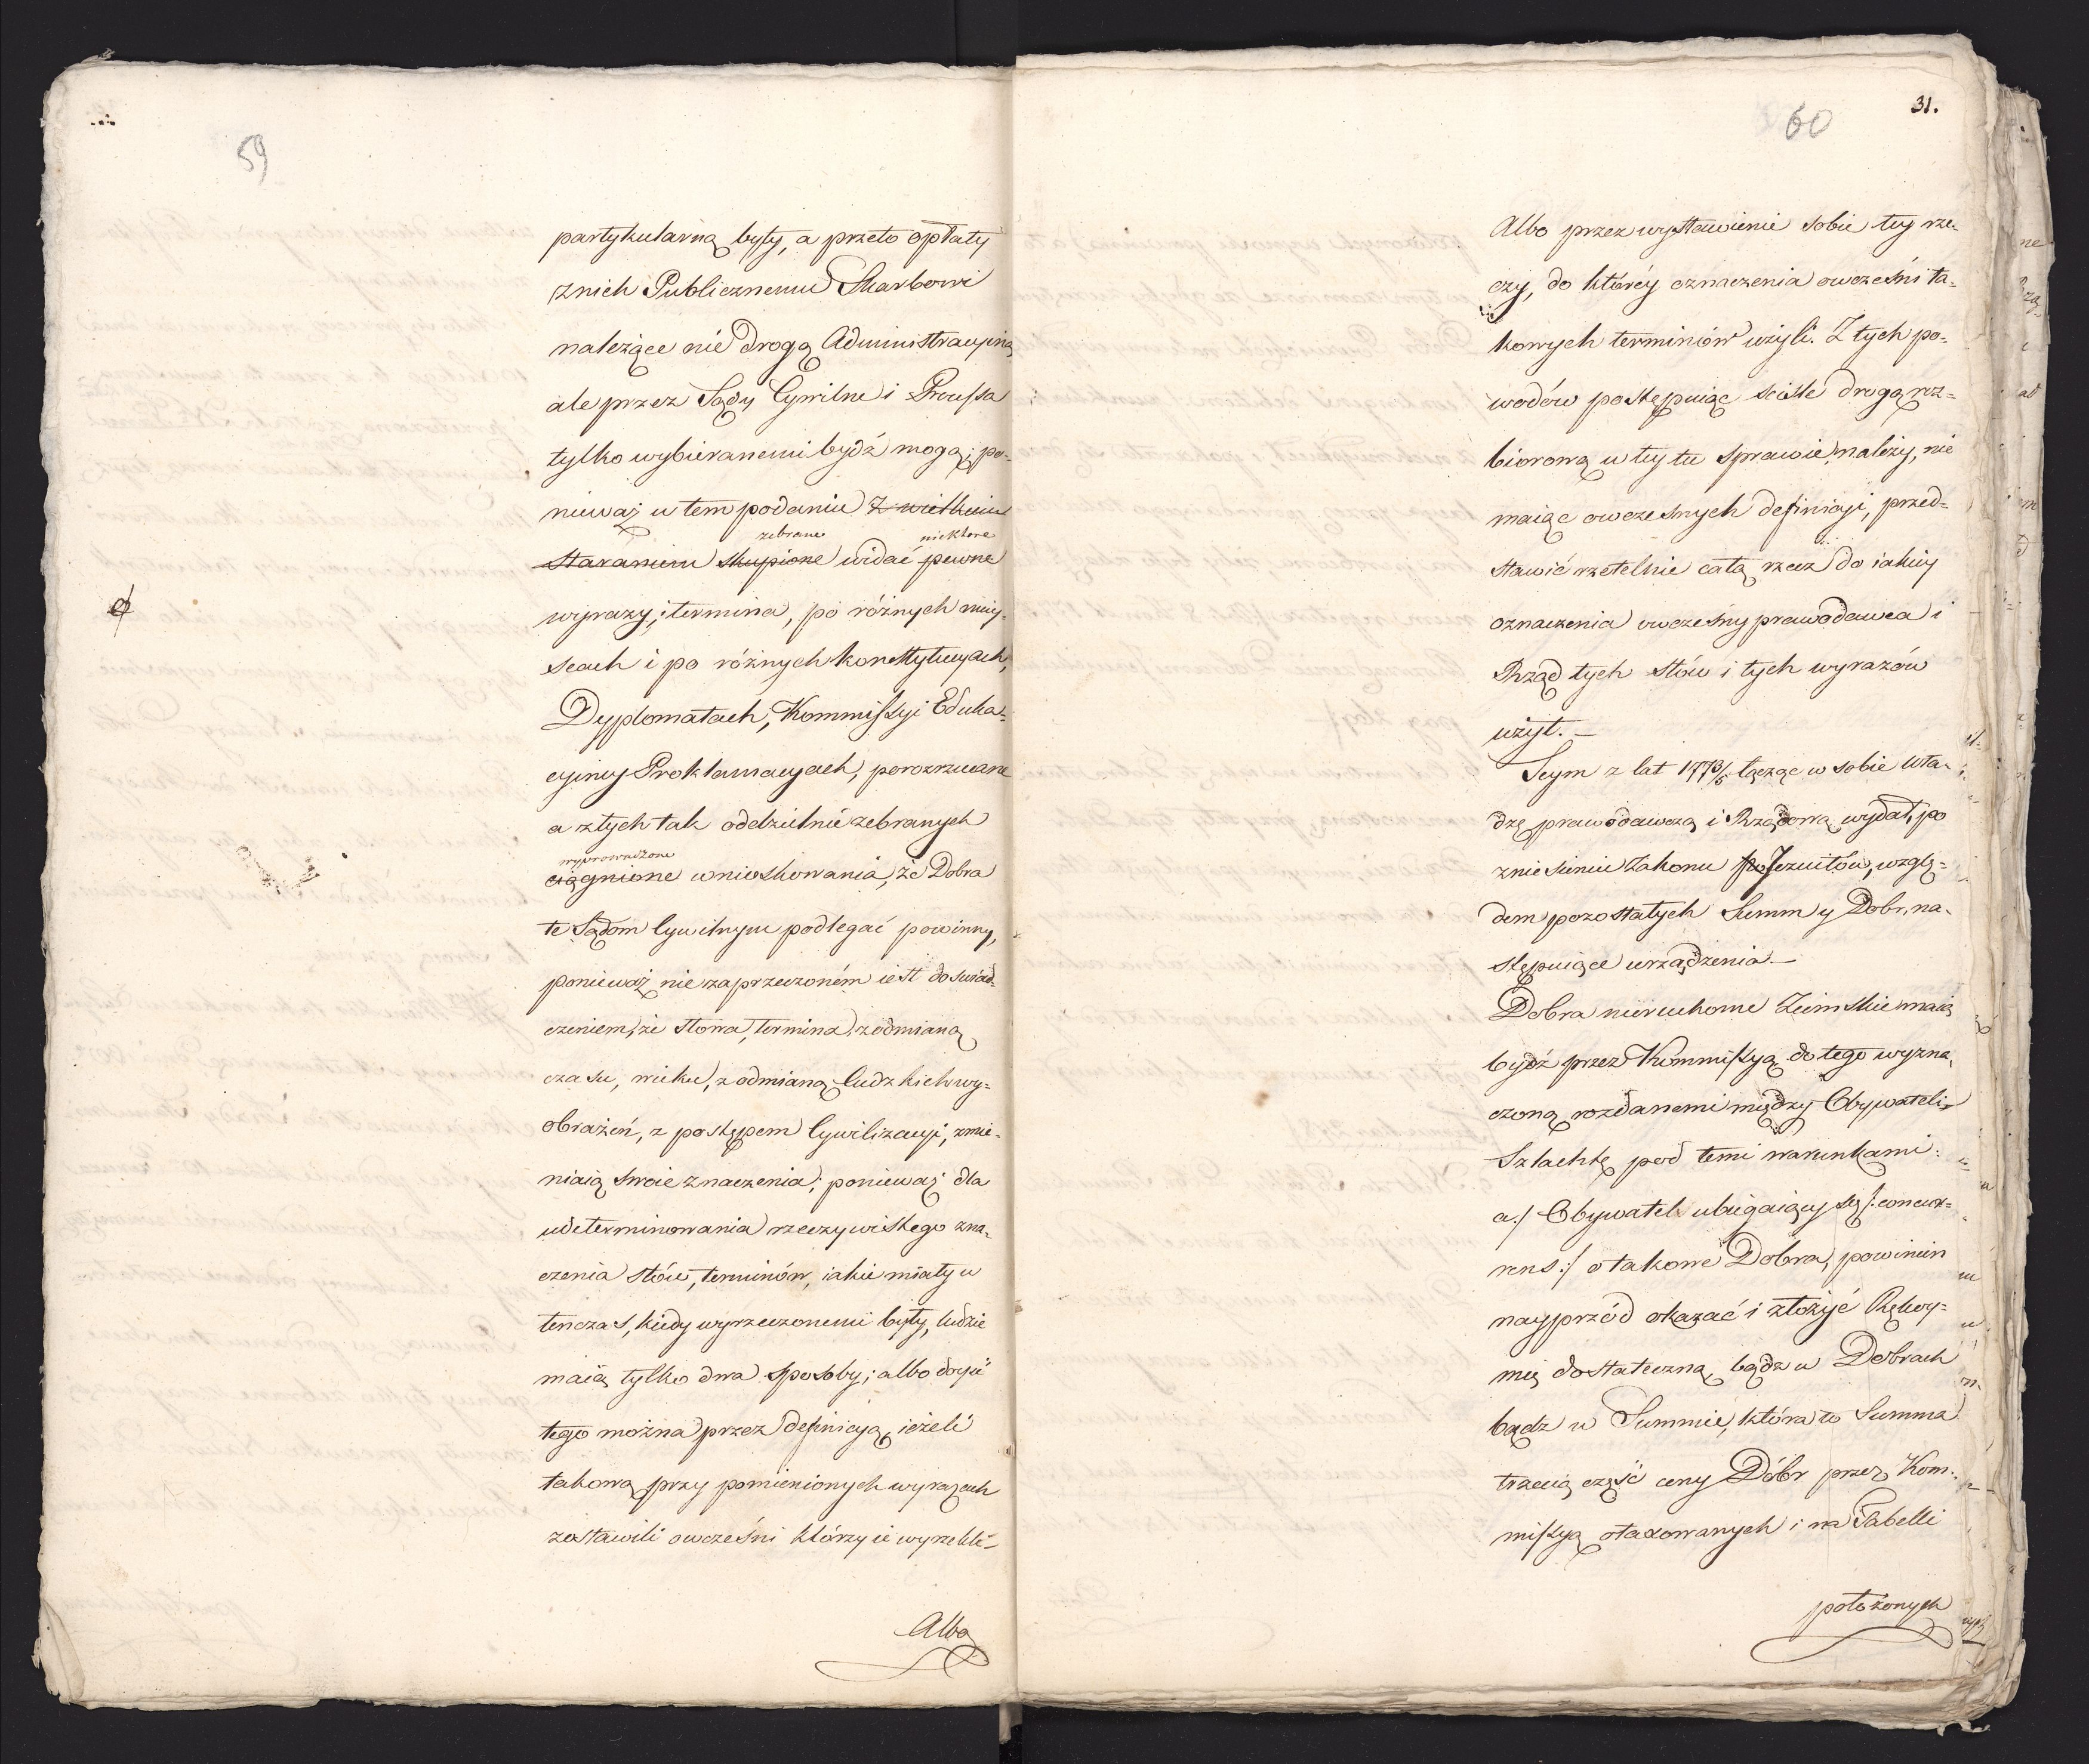 59
partykularną były, a przeto opłaty
znich Publicznemu Skarbowi
należące nié drogą Administracyiną
ale przez Sądy Cywilne i Processa
tylko wybieranemi bydź mogą; po-
nieważ w tem podaniu z wielkiem
zebrane niektore
staraniem skupione widać pewne
wyrazy, i termina, po różnych miey-
scach i po różnych konstytucyach,
Dyplomatach, Kommissyi Eduka-
cyiney Proklamacyach, porozrzucane
a z tych tak oddzielnié zebranych
wyprowadzone
ciągnione wnioskowania, że Dobra
te Sądom Cywilnym podlegać powinny,
ponieważ nie zaprzeczoném iest doswiad-
czeniem, że słowa, termina, z odmianą
czasu, wieku, z odmianą ludzkich wy-
obrażeń, z postępem Cywilizacyi, zmie-
niaią swoie znaczenia; ponieważ dla
udeterminowania rzeczywistego zna-
czenia słów, terminów, iakie miały w
tenczas, kiedy wyrzeczonemi były, ludzie
maią tylko dwa sposoby; albo doyść
tego można przez definicyą, ieżeli
takową przy pomienionych wyrazach
zostawili owcześni którzy ie wyrzekli-
Albo
60
31.
Albo przez wystawienie sobie tey rze-
czy, do któréy oznaczenia owcześni ta-
kowych terminów użyli. Z tych po-
wodów postępuiąc sciśle drogą roz-
biorową w tey tu sprawie należy, nie
maiąc owczesnych definicyi, przed-
stawić rzetelnie całą rzecz do iakiey
oznaczenia owczesny prawodawca i
Rząd tych słów i tych wyrazów
użył. -
Seym z lat 1773/5 łącząc w sobie wła-
dzę prawodawczą i Rządową wydał, po
zniesieniu Zakonu po Jezuitów, wzglę-
dem pozostałych Summ y Dobr, na-
stępuiące urządzenia. -
Dobra nieruchome Ziemskie maią
bydź przez Kommissyą do tego wyzna-
czoną rozdanemi między Obywateli
Szlachtę pod temi warunkami:
a./ Obywatel ubiegaiący się /: concur-
rens :/ o takowe Dobra, powinien
nayprzód okazać i złożyć Rękoy-
mię dostateczną, bądz w Dobrach
bądz w Summie, która to Summa
trzecią część ceny Dóbr przez Kom-
missyą otaxowanych i na Tabelli
położonych